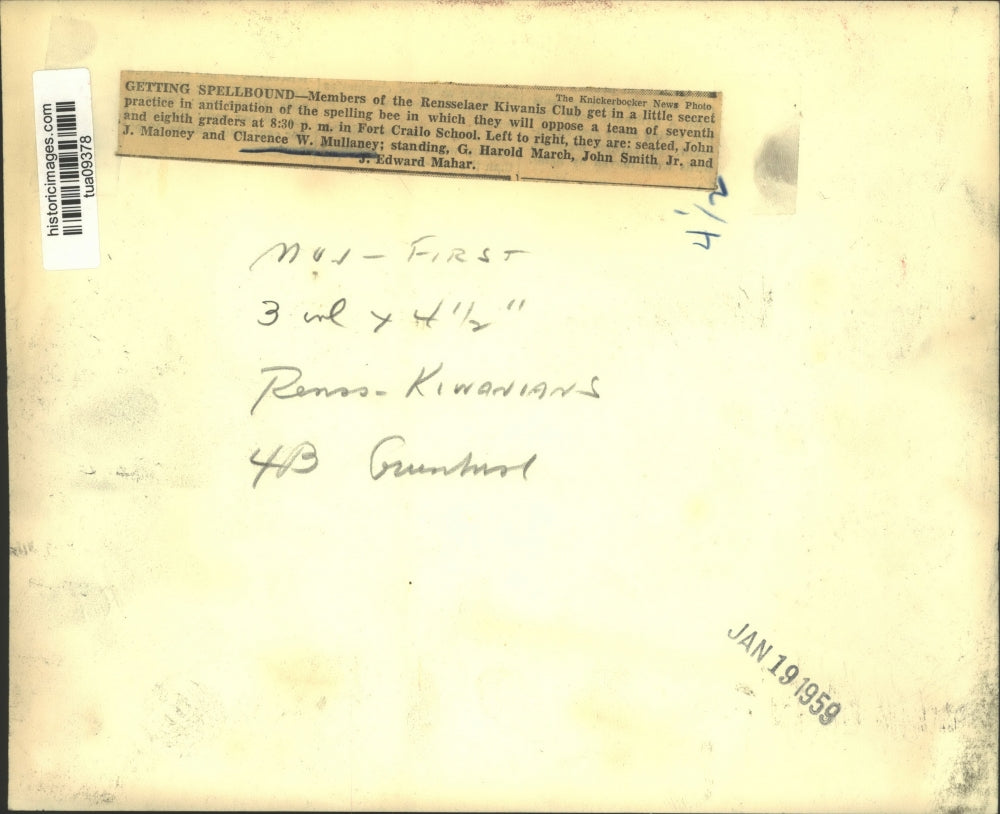 historicimages.com
tua09378
The Knickerbocker News Photo
GETTING SPELLBOUND—Members of the Rensselaer Kiwanis Club get in a little secret
practice in anticipation of the spelling bee in which they will oppose a team of seventh
and eighth graders at 8:30 p. m. in Fort Crailo School. Left to right, they are: seated, John
J. Maloney and Clarence W. Mullaney; standing, G. Harold March, John Smith Jr. and
J. Edward Mahar.
1
- FIRST
3 col x 4 1/2"
Renss- KIWANIANS
4B
JAN 19 1959